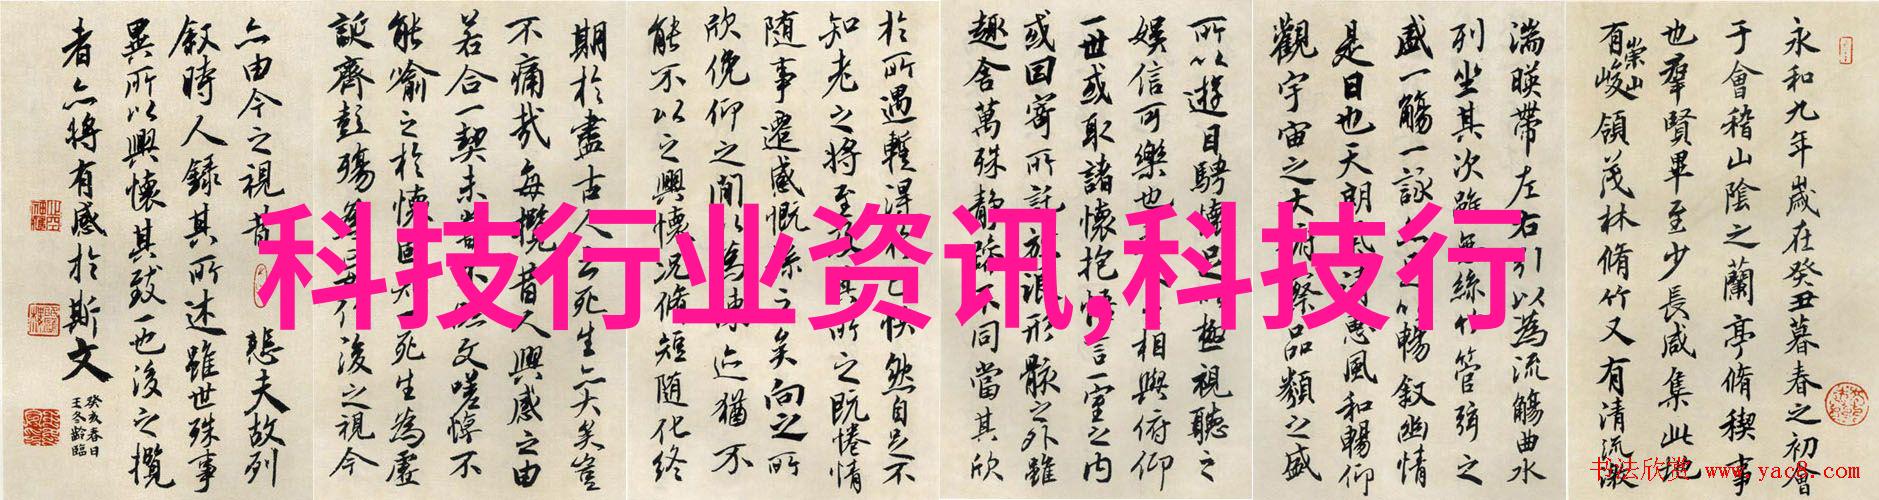 永和九年歲在癸丑暮春之初會
于會稽山陰之蘭亭脩稧事
也羣賢畢至少長咸集此地
有崇山峻領茂林脩竹又有清流激
湍暎帶左右引以為流觴曲水
列坐其次雖無絲竹管弦之
盛一觴一詠亦足以暢敘幽情
是日也天朗氣清惠風和暢仰
觀宇宙之大府察品類之盛
所以遊目騁懷足以極視聽之
娛信可樂也夫人之相與俯仰
一世或取諸懷抱悟言一室之內
或因寄所託放浪形骸之外雖
趣舍萬殊靜躁不同當其欣
於所遇蹔得於己快然自足不
知老之將至及其所之既惓情
随事遷感慨係之矣向之所
欣俛仰之間以為陳迹猶不
能不以之興懷况脩短随化終
期於盡古人云死生亦大矣豈
不痛哉每攬昔人興感之由
若合一契未嘗不臨文嗟悼不
能喻之於懷固知一死生為虛
誕齊彭殤為妄作後之視今
亦由今之視昔 悲夫故列
敘時人錄其所述雖世殊事
異所以興懷其致一也後之攬
者亦將有感於斯文
癸亥春日
王冬齡臨
科技行业资讯,科技行
书法欣赏 www.yac8.com